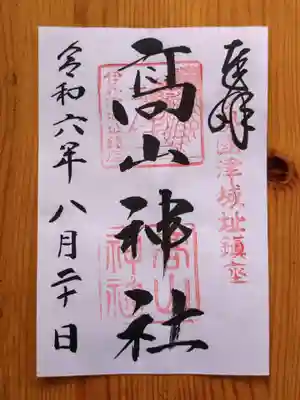 奉拝
津城址鎮座
高山神社
高山神社
令和六年八月二十日